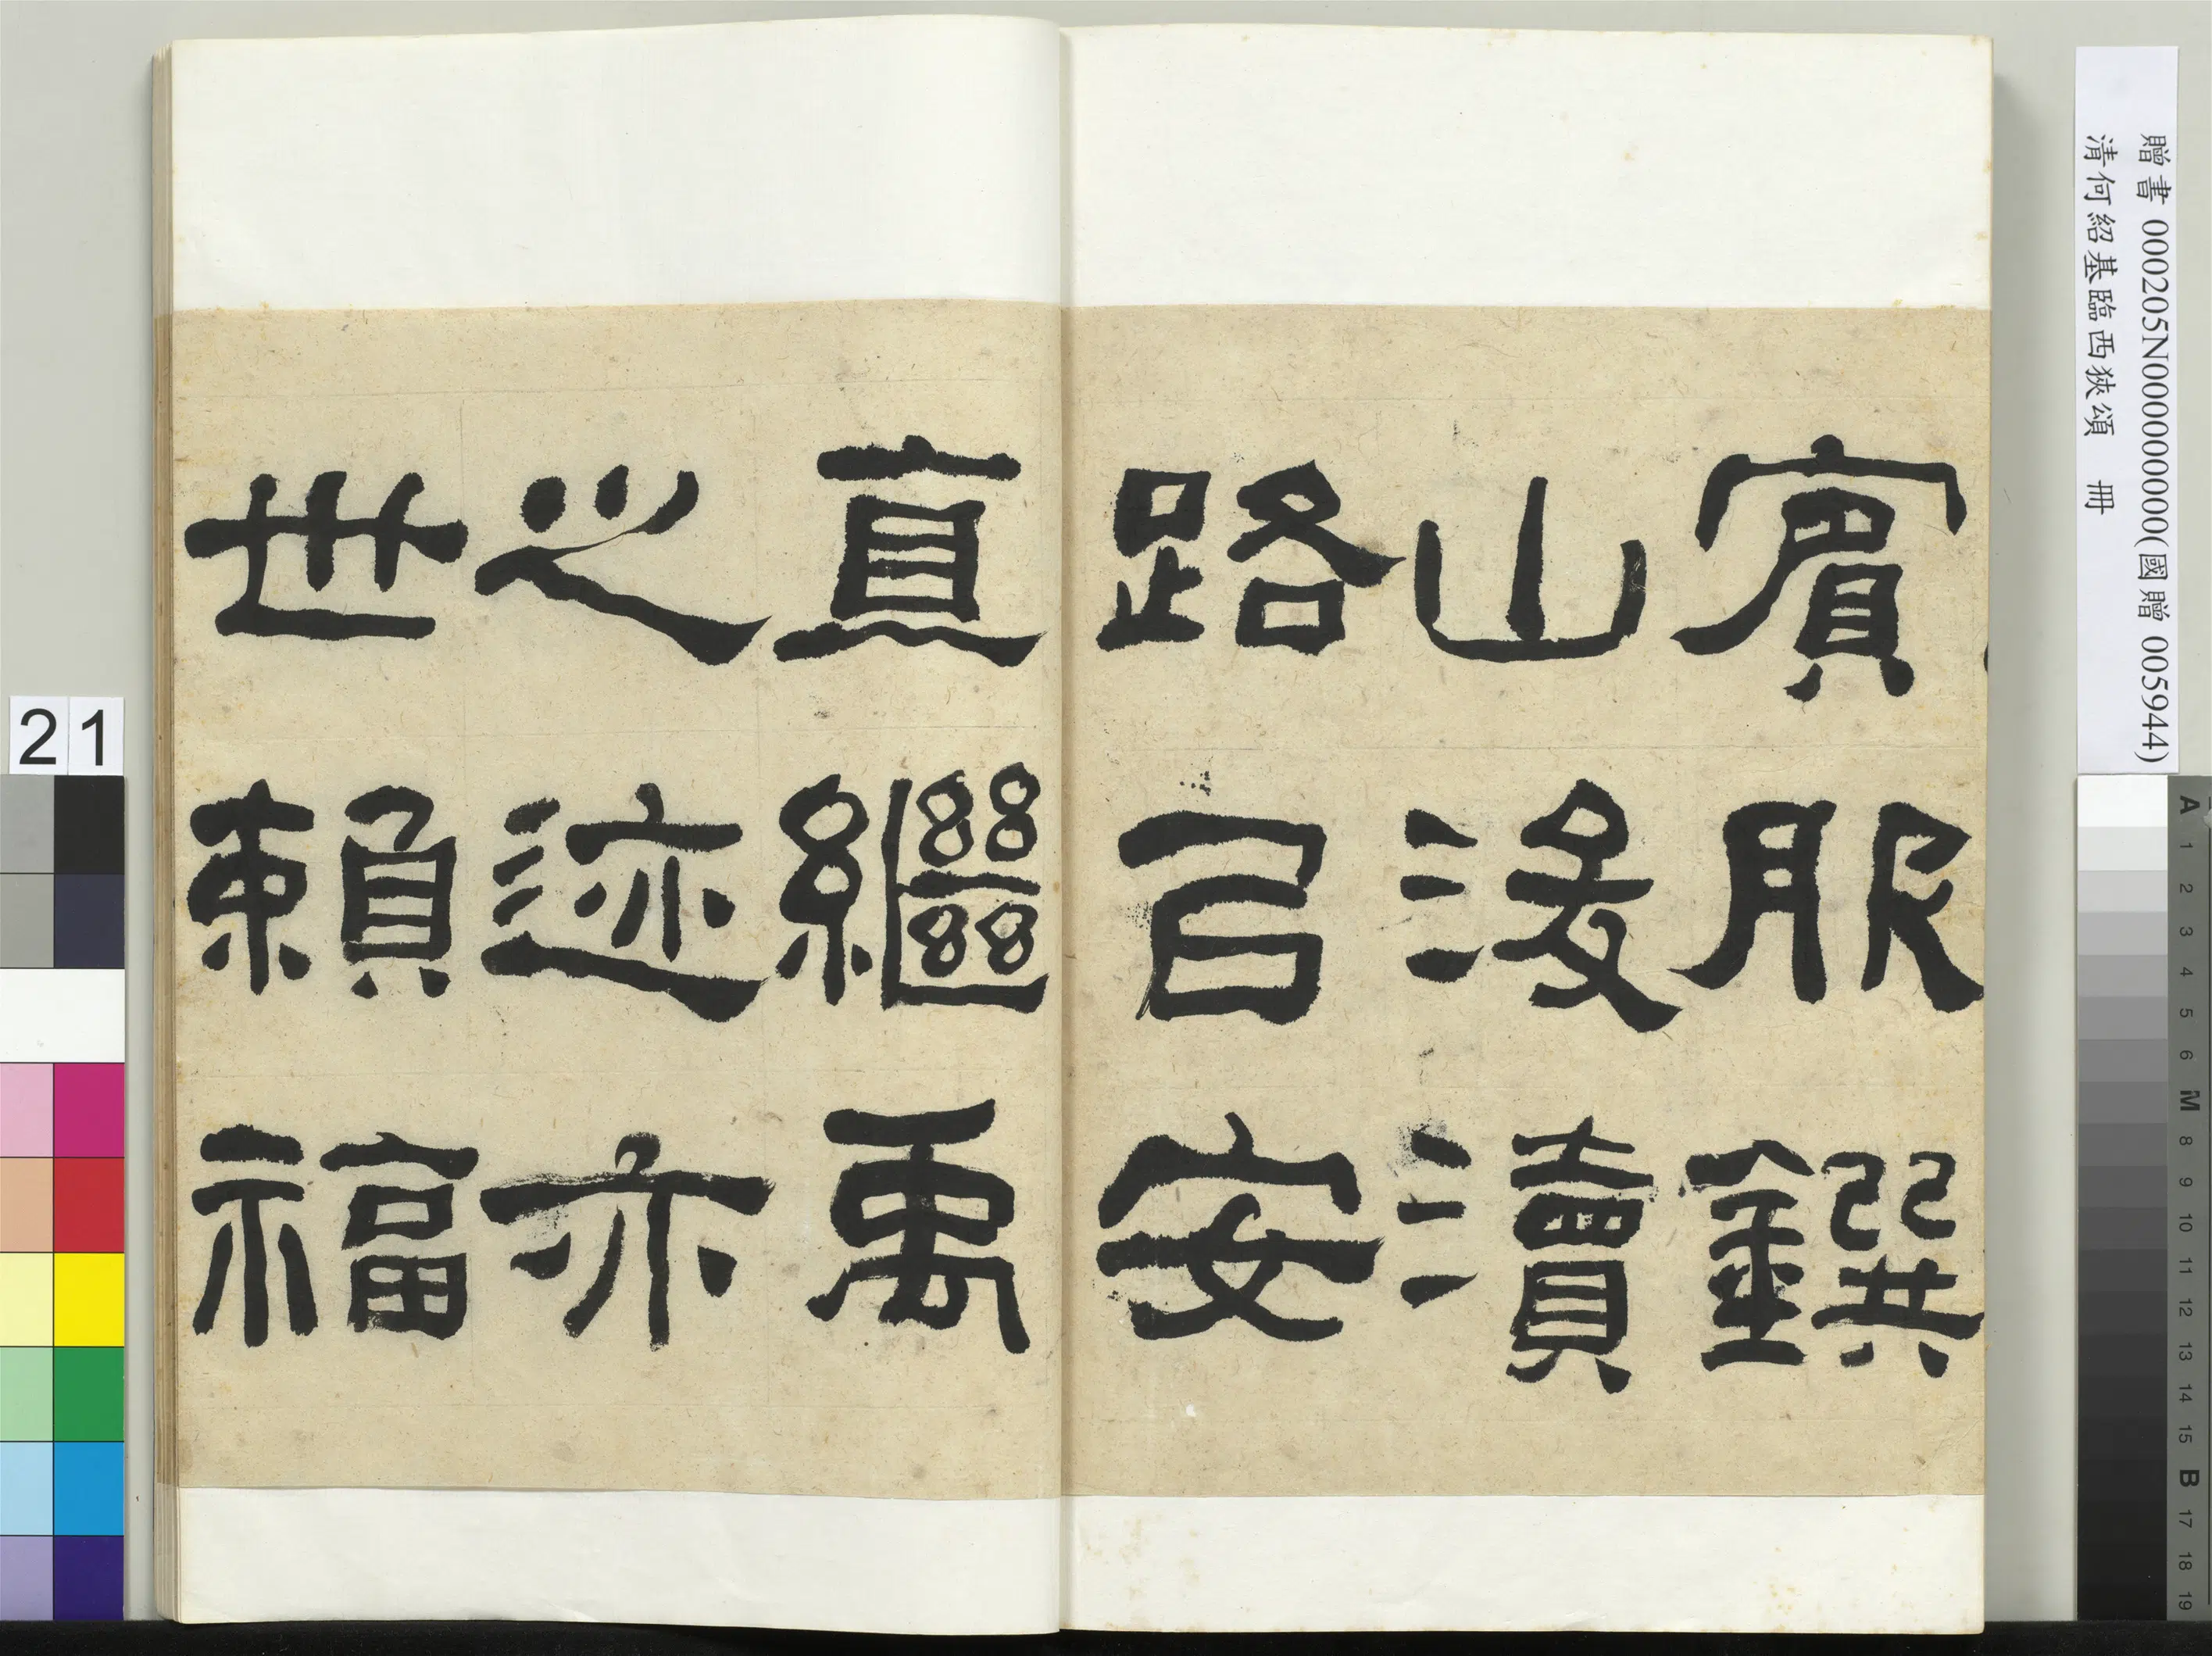 賓服鐉
山浚瀆
路以安
直繼禹
之迹亦
世賴福
贈書 000205N000000000(國贈 005944)
清何紹基臨西狹頌 冊
21
A
1
2
3
4
5
6
M
8
9
10
11
12
13
14
15
B
17
18
19